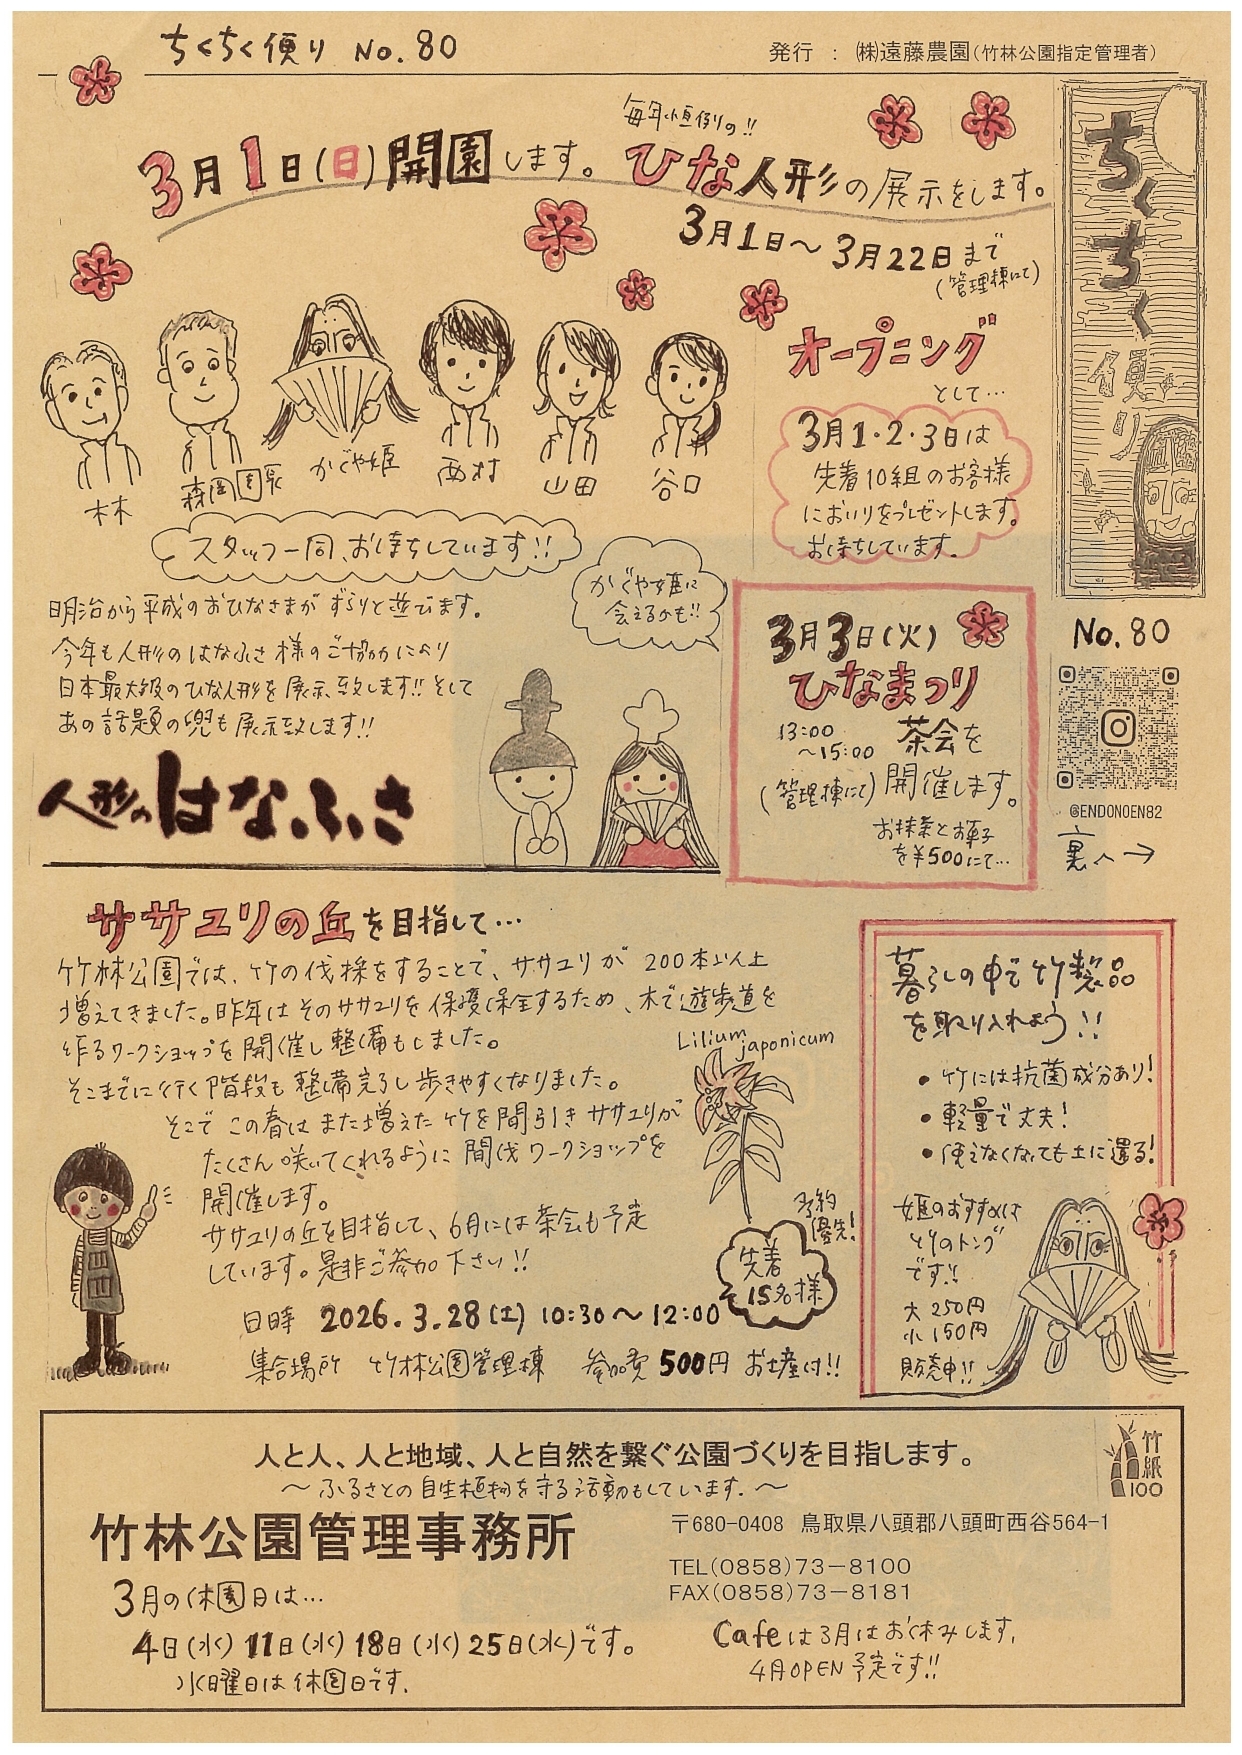 ちくちく便り No.80
発行 : ㈱遠藤農園(竹林公園指定管理者)
毎年恒例の!!
3月1日(日)開園します。ひな人形の展示をします。
3月1日〜3月22日まで
(管理棟にて)
ちくちく便り
オープニング
として…
3月1・2・3日は
先着10組のお客様
においりをプレゼントします。
お待ちしています。
林
森岡園長
かぐや姫
西村
山田
谷口
スタッフ一同、お待ちしています!!
かぐや姫に
会えるかも!!
明治から平成のおひなさまがずらりと並びます。
今年も人形のはなふさ様のご協力により
日本最大級のひな人形を展示致します!!そして
あの話題の兜も展示致します!!
人形のはなふさ
3月3日(火)
ひなまつり
13:00
〜15:00
茶会を
(管理棟にて)開催します。
お抹茶とお菓子
を¥500にて…
No.80
@ENDONOEN82
裏へ→
ササユリの丘を目指して…
竹林公園では、竹の伐採をすることで、ササユリが200本以上
増えてきました。昨年はそのササユリを保護保全するため、木で遊歩道を
作るワークショップを開催し整備もしました。
そこまでに行く階段も整備完了し歩きやすくなりました。
そこでこの春はまた増えた竹を間引きササユリが
たくさん咲いてくれるように間伐ワークショップを
開催します。
ササユリの丘を目指して、6月には茶会も予定
しています。是非ご参加下さい!!
Lilium japonicum
予約
優先!
先着
15名様
日時 2026.3.28(土) 10:30〜12:00
集合場所 竹林公園管理棟 参加費500円 お土産付!!
暮らしの中で竹製品
を取り入れよう!!
・竹には抗菌成分あり!
・軽量で丈夫!
・使えなくなっても土に還る!
姫のおすすめは
竹のトング
です!!
大 250円
小 150円
販売中!!
人と人、人と地域、人と自然を繋ぐ公園づくりを目指します。
〜ふるさとの自生植物を守る活動もしています。〜
竹紙
100
竹林公園管理事務所
〒680-0408 鳥取県八頭郡八頭町西谷564-1
TEL(0858)73-8100
FAX(0858)73-8181
3月の休園日は…
4日(水)11日(水)18日(水)25日(水)です。
水曜日は休園日です。
Cafeは3月はお休みします。
4月OPEN予定です!!